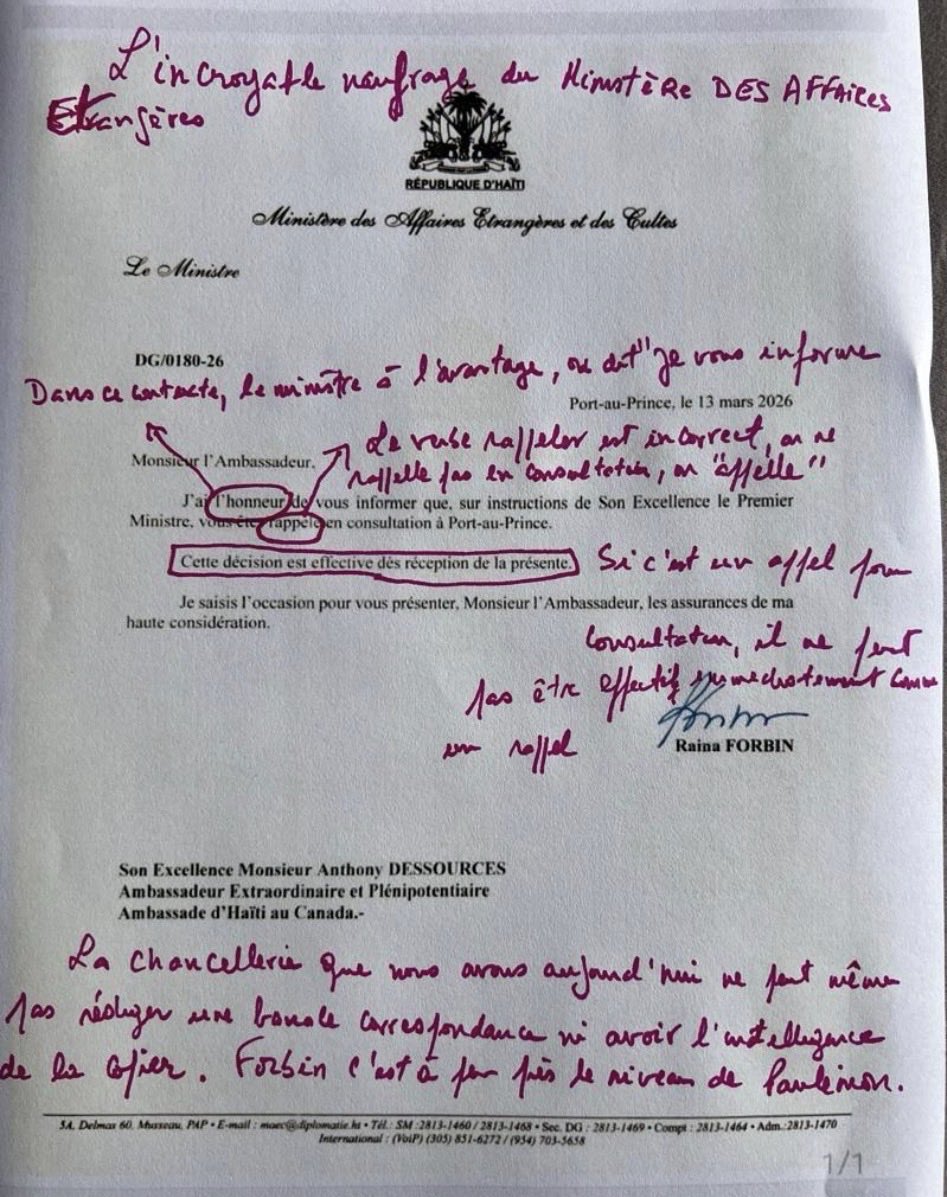 L'incroyable naufrage du MINISTÈRE DES AFFAIRES
Etrangères
RÉPUBLIQUE D'HAÏTI
Ministère des Affaires Etrangères et des Cultes
Le Ministre
DG/0180-26
Dans ce contexte, le ministre à l'avantage, on dit "je vous informe
Port-au-Prince, le 13 mars 2026
Le verbe rappeler est incorrect, on ne
rappelle pas en consultation, on "appelle"
Monsieur l'Ambassadeur,
J'ai l'honneur de vous informer que, sur instructions de Son Excellence le Premier
Ministre, vous êtes rappelé en consultation à Port-au-Prince.
Cette décision est effective dès réception de la présente.
Si c'est un appel pour
consultation, il ne peut
pas être effectif immédiatement comme
un rappel
Je saisis l'occasion pour vous présenter, Monsieur l'Ambassadeur, les assurances de ma
haute considération.
Raina FORBIN
Son Excellence Monsieur Anthony DESSOURCES
Ambassadeur Extraordinaire et Plénipotentiaire
Ambassade d'Haïti au Canada.-
La Chancellerie que nous avons aujourd'hui ne peut même
pas rédiger une banale correspondance ni avoir l'intelligence
de la copier. Forbin c'est à peu près le niveau de
5A, Delmas 60, Musseau, PAP • E-mail : maec@diplomatie.ht • Tél.: SM :2813-1460 / 2813-1468 • Sec. DG : 2813-1469 • Compt : 2813-1464 • Adm.:2813-1470
International : (VoiP) (305) 851-6272 / (954) 703-5658
1/1